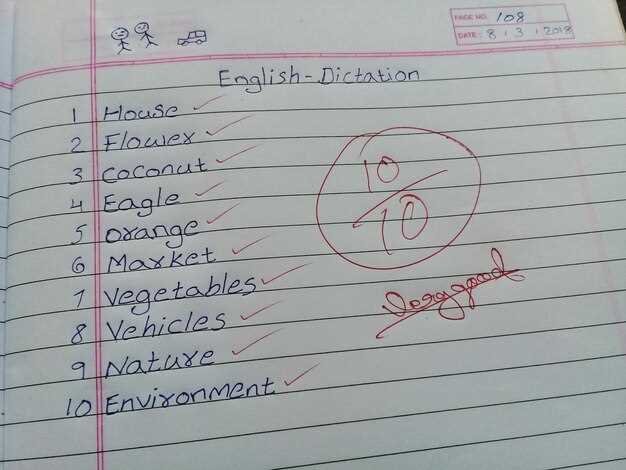 PAGE NO. 108
DATE: 8 . 3 . 2018
English-Dictation
1 House
2 Flower
3 coconut
4 Eagle
5 orange
6 Market
7 Vegetables
8 Vehicles
9 Nature
10 Environment
10
10
Very good